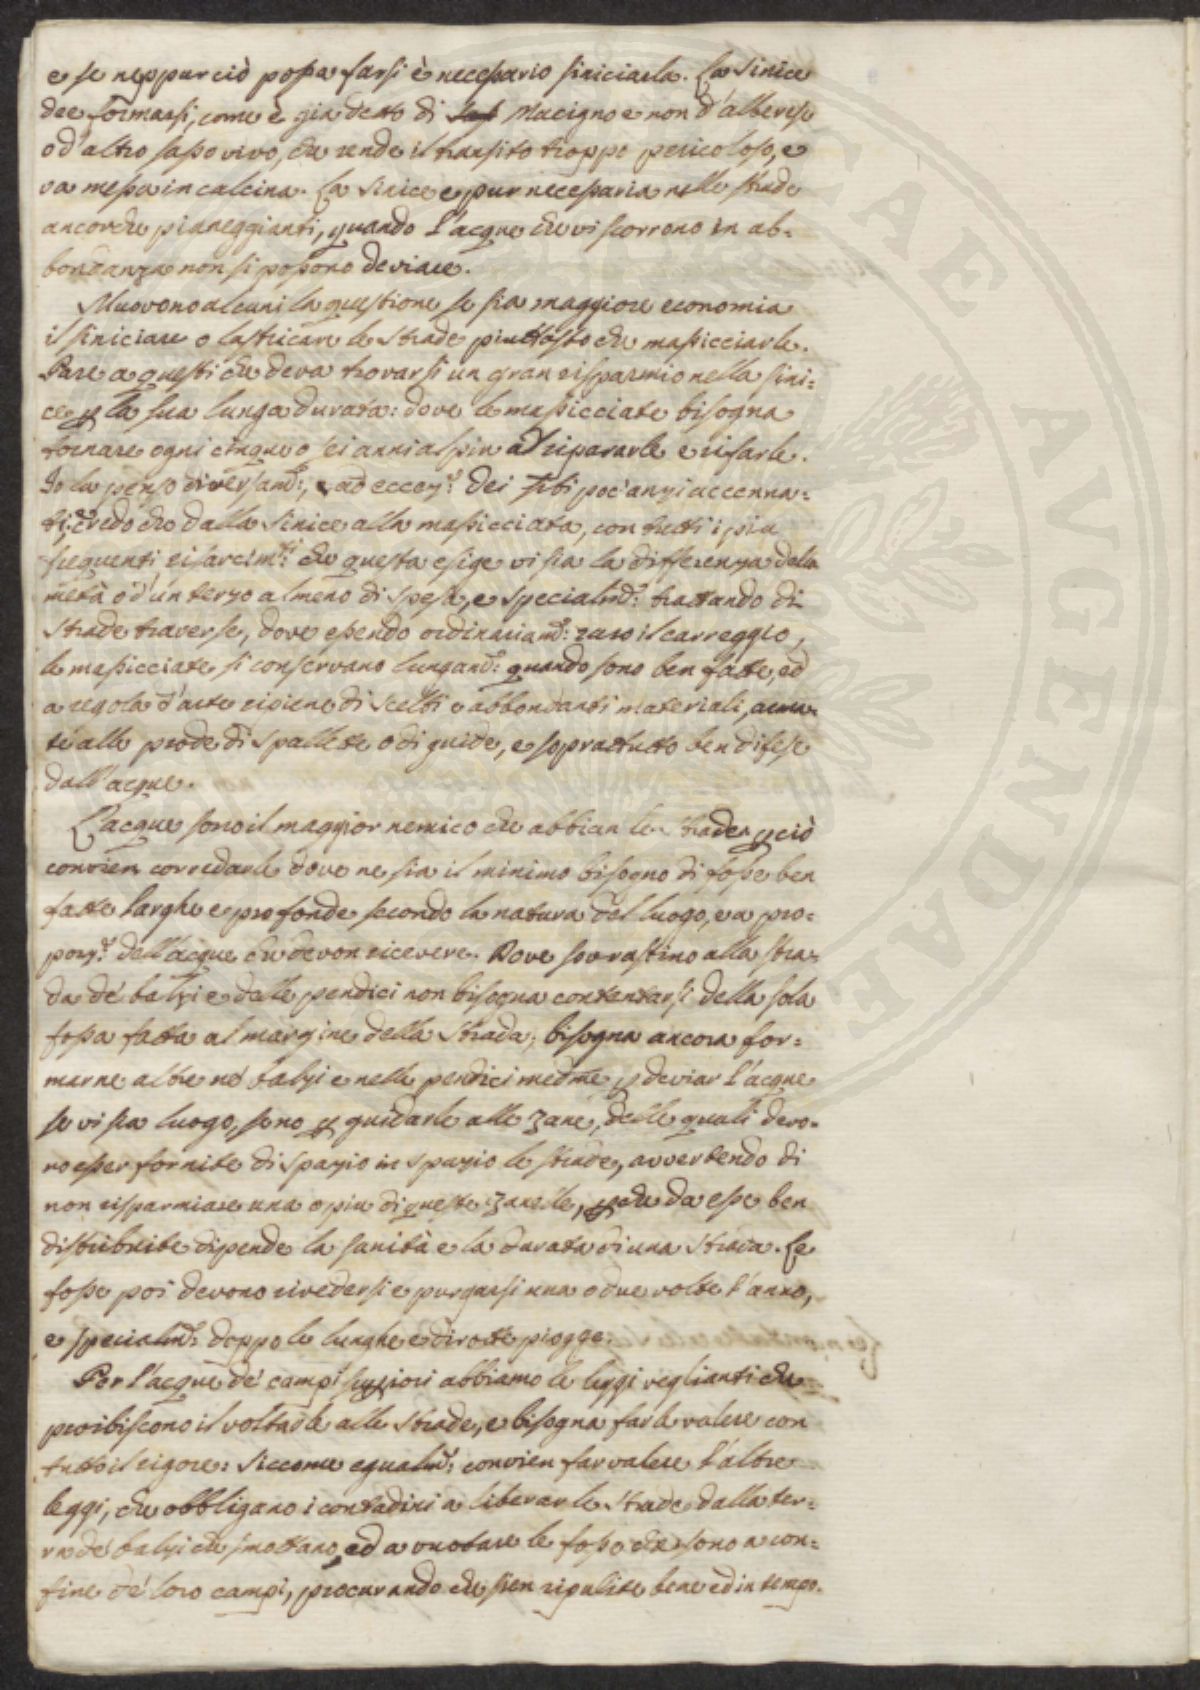 e se neppur ciò possa farsi è necessario siniciarla. La sinice
dee formarsi, come è già detto di Macigno e non d'alberese
o d'altro sasso vivo, che rende il transito troppo pericoloso, e
va messa in calcina. La sinice e pur necessaria nelle strade
ancorche pianeggianti, quando l'acque che vi scorrono in ab=
bondanza non si possono deviare.
Muovono alcuni la questione se sia maggiore economia
il siniciare o lastricare le strade piuttosto che massicciarle.
Pare a questi che deva trovarsi un gran risparmio nella sini=
ce p la sua lunga durata: dove le massicciate bisogna
tornare ogni cinque o sei anni al piu a ripararle e rifarle.
Io la penso diversamᵉ:, ad eccezᵉ: dei siti poc'anzi accenna=
ti, credo che dalla sinice alla massicciata, con tutti i piu
frequenti risarcimᵗⁱ: che questa esige vi sia la differenza della
metà o d'un terzo almeno di spesa, e specialmᵉ: trattando di
strade traverse, dove essendo ordinariamᵉ: raro il carreggio,
le massicciate si conservano lungamᵉ: quando sono ben fatte, ed
a regola d'arte ripiene di scelti e abbondanti materiali, armate
alle prode di spallette o di guide, e sopratutto ben difese
dall'acque.
L'acque sono il maggior nemico che abbian le strade, p ciò
convien corredarle dove ne sia il minimo bisogno di fosse ben
fatte larghe e profonde secondo la natura del luogo, e a pro=
porzᵉ: dell'acque che devon ricevere. Dove sovrastino alla stra=
da de' balzi e delle pendici non bisogna contentarsi della sola
fossa fatta al margine della strada; bisogna ancora for=
marne altre ne' balzi e nelle pendici medme p deviar l'acque
se vi sia luogo, se no p guidarle alle zane, delle quali devo=
no esser fornite di spazio in spazio le strade, avvertendo di
non risparmiare una o piu di queste zanelle, p che da esse ben
distribuite dipende la sanità e la durata di una strada. Le
fosse poi devono rivedersi e purgarsi una o due volte l'anno,
e specialmᵉ: doppo le lunghe e dirotte piogge.
Per l'acque de' campi supiori abbiamo le leggi veglianti che
proibiscono il voltarle alle strade, e bisogna farle valere con
tutto il rigore: siccome egualmᵉ: convien far valere l'altre
leggi, che obbligano i contadini a liberar le strade dalla ter=
ra de' balzi che smottano, ed a vuotare le fosse che sono a con=
fine de' loro campi, procurando che sien ripulite bene ed in tempo.
AVGENDAE